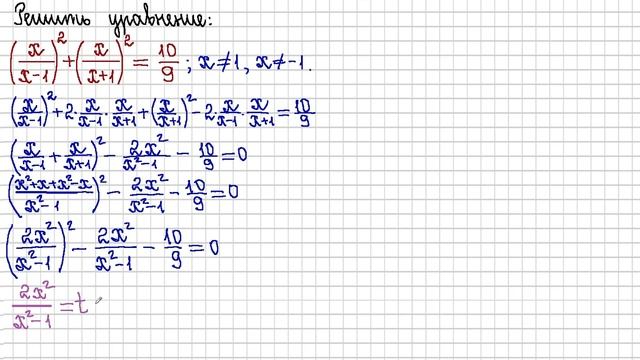 Решить уравнение:
(x/(x-1))² + (x/(x+1))² = 10/9 ; x≠1, x≠-1.
(x/(x-1))² + 2·x/(x-1)·x/(x+1) + (x/(x+1))² - 2·x/(x-1)·x/(x+1) = 10/9
(x/(x-1) + x/(x+1))² - 2x²/(x²-1) - 10/9 = 0
((x²+x+x²-x)/(x²-1))² - 2x²/(x²-1) - 10/9 = 0
(2x²/(x²-1))² - 2x²/(x²-1) - 10/9 = 0
2x²/(x²-1) = t